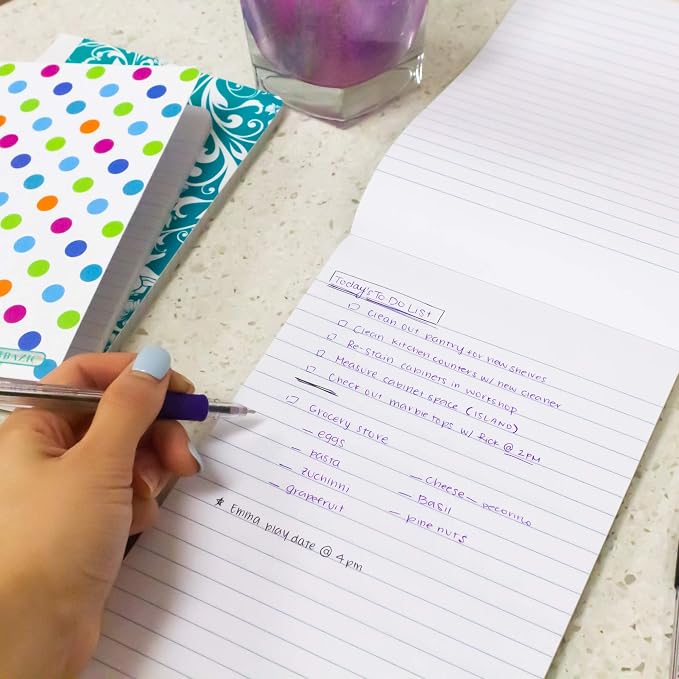 BAZIC
Today's To DO List
Clean out pantry for new shelves
Clean kitchen counters w/ new cleaner
Re-Stain cabinets in workshop
Measure cabinet space (ISLAND)
Check out marble tops w/ Rick @ 2PM
Grocery store
- eggs
- pasta
- zuchinni
- grapefruit
- cheese - pecorino
- Basil
- pine nuts
★ Emma play date @ 4pm